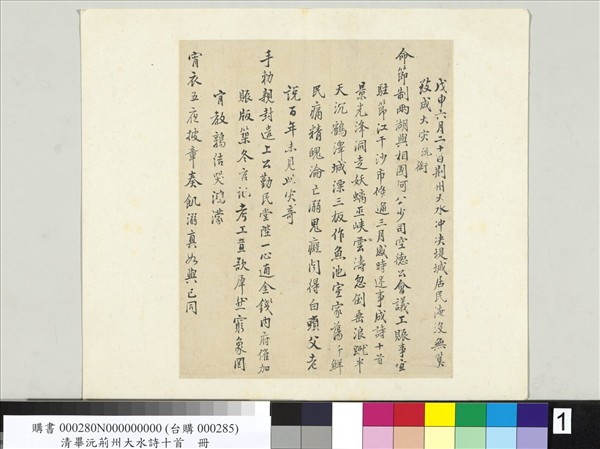 戊申六月二十日荊州大水冲決堤城居民淹沒無算
致成大灾沅銜
命節制兩湖與相國阿公少司空德公會議工賑事宜
駐節江干沙市倏過三月感時述事成詩十首
景光浲洞走妖螭巫峽雲濤忽倒垂浪蹴半
天沉鶴澤城漂三板作魚池室家蕩析鮮
民痛精魄淪亡溺鬼癡閧得白頭父老
說百年未見此灾奇
手勑親封遣上公勤民堂陛一心通金錢內府催加
賑版築冬官記考工直欵犀燃窮象罔
肯教鶉結哭鴻濛
宵衣五夜披章奏飢溺真如與己同
購書 000280N000000000 (台購 000285)
清畢沅荊州大水詩十首 冊
1